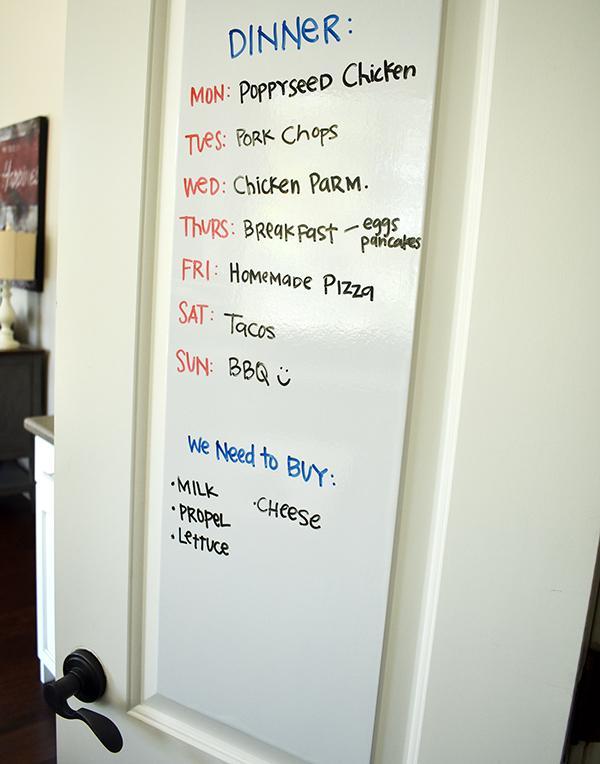 DINNER:
MON: POPPYSEED Chicken
TUES: PORK Chops
WED: Chicken PARM.
THURS: BREAKFAST - eggs
pancakes
FRI: HOMEMADE PIZZA
SAT: TACOS
SUN: BBQ
We Need to BUY:
• MILK
• CHEESE
• PROPEL
• Lettuce